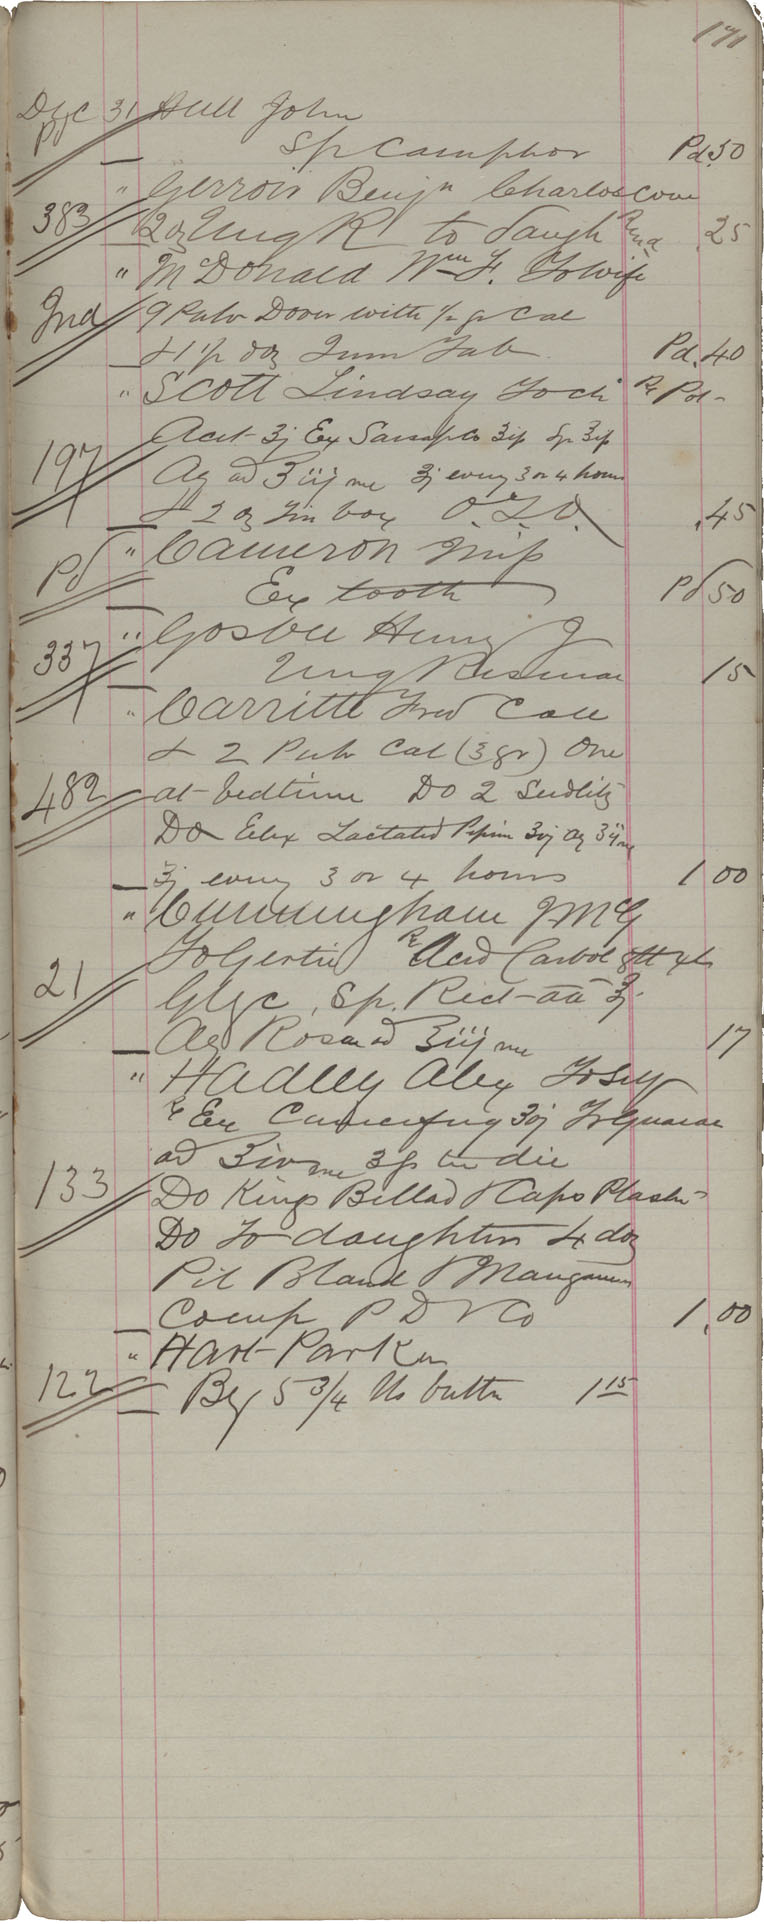 171
Dec 31 Hull John
Pd Sp Camphor Pd .50
" Gerroir Benjn Charlos cove
383 2 oz Ung R to daugh .25
" McDonald Wm F. To wife
Ind 9 Pulv Dover with ½ gr Cal
& 1 p doz Tab Pd .40
" Scott Lindsay To ch Rx Pot
197 Acet ʒj Ex Sarsap Co ʒip Sp ʒip
Aq ad ℥iij me ʒj every 3 or 4 hours
& 2 oz Tin box .45
" Cameron
Pd Ex tooth Pd 50
" Gosbee Henry J
337 Ung 15
" Carritte Fred Call
& 2 Pulv Cal (3 gr) One
482 at bedtime Do 2 Seidlitz
Do Elix Lactated Pepsin ʒvj Aq
ʒj every 3 or 4 hours 1 00
" Cunningham J McG
To Gertie Rx Acid Carbol gtt
21 Glyc, Sp. Rect aa ʒj
Aq Rosa ad ℥iij me 17
" Hadley Alex To Self
Rx Ex Cimicifug ʒvj Tr Guaiac
ad ℥iv me ʒp ter die
133 Do Kings Bellad & Caps Plaster
Do To daughter 4 doz
Pil Blaud & Manganum
Comp P D & Co 1.00
" Hart Parker
122 By 5 3/4 lbs butter 1 15